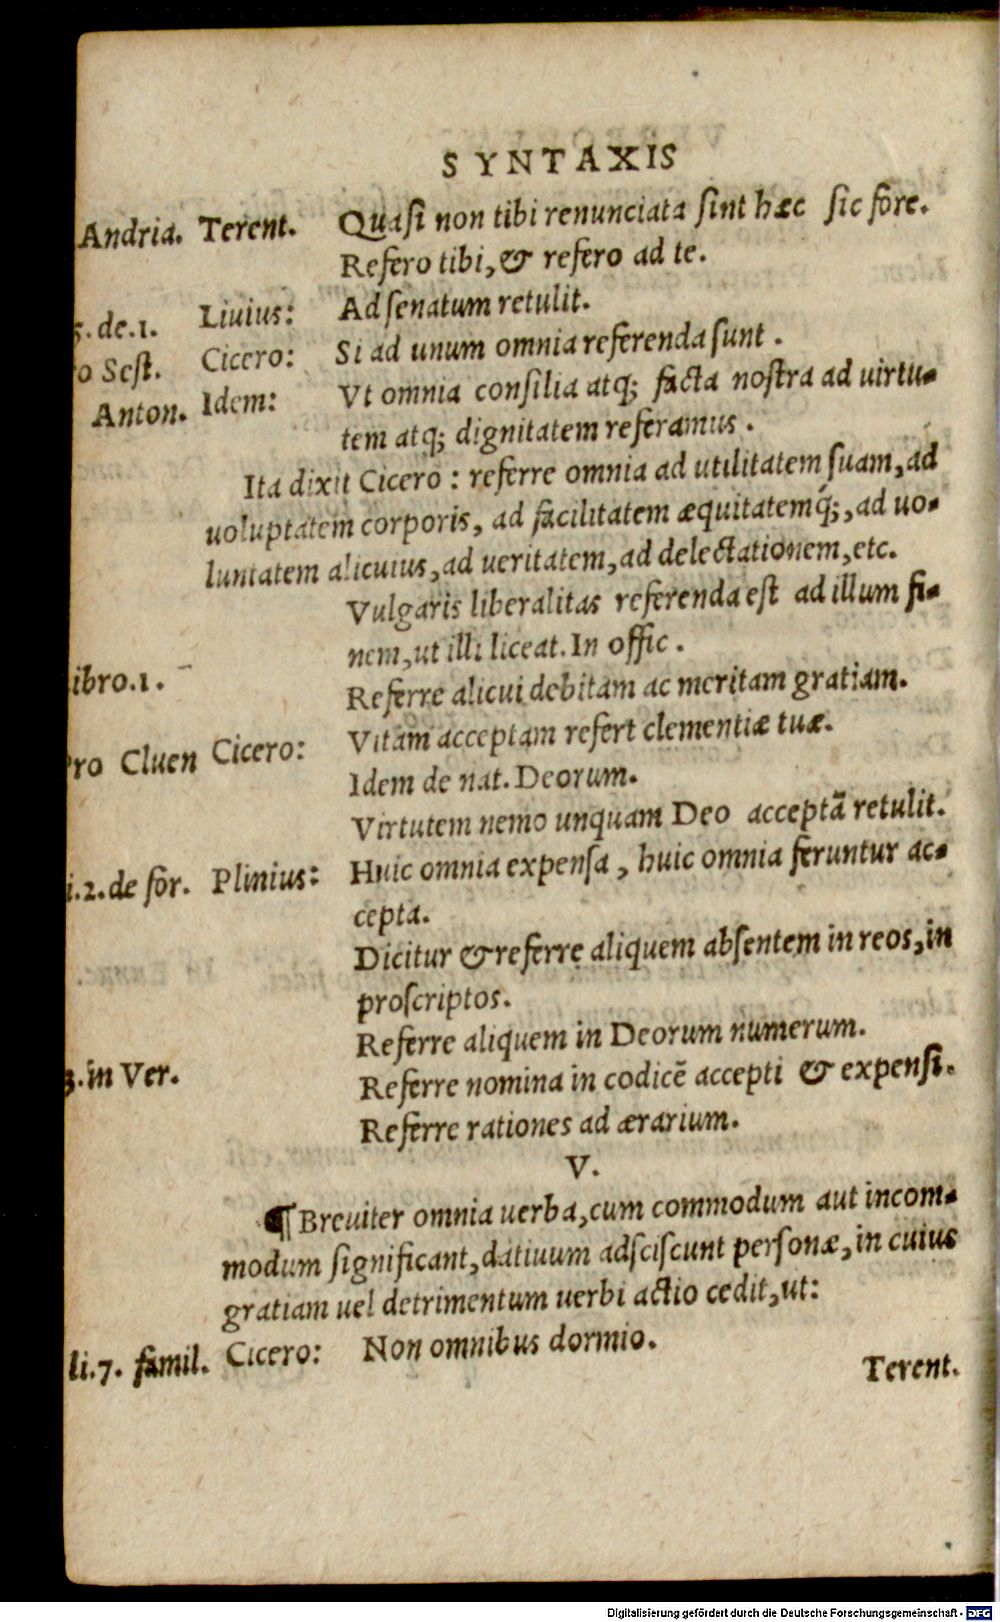 SYNTAXIS
Andria. Terent. Quasi non tibi renunciata sint hæc sic fore.
Refero tibi, & refero ad te.
5.de.1. Liuius: Ad senatum retulit.
o Sest. Cicero: Si ad unum omnia referenda sunt.
Anton. Idem: Vt omnia consilia atq; facta nostra ad uirtu-
tem atq; dignitatem referamus.
Ita dixit Cicero: referre omnia ad utilitatem suam, ad
uoluptatem corporis, ad facilitatem æquitatemq́;, ad uo-
luntatem alicuius, ad ueritatem, ad delectationem, etc.
Vulgaris liberalitas referenda est ad illum fi-
nem, ut illi liceat. In offic.
ibro.1.
Referre alicui debitam ac meritam gratiam.
ro Cluen Cicero: Vitam acceptam refert clementiæ tuæ.
Idem de nat. Deorum.
Virtutem nemo unquam Deo acceptã retulit.
i.2.de for. Plinius: Huic omnia expensa, huic omnia feruntur ac-
cepta.
Dicitur & referre aliquem absentem in reos, in
proscriptos.
Referre aliquem in Deorum numerum.
3.in Ver. Referre nomina in codicẽ accepti & expensi.
Referre rationes ad ærarium.
V.
¶ Breuiter omnia uerba, cum commodum aut incom-
modum significant, datiuum adsciscunt personæ, in cuius
gratiam uel detrimentum uerbi actio cedit, ut:
li.7. famil. Cicero: Non omnibus dormio.
Terent.
Digitalisierung gefördert durch die Deutsche Forschungsgemeinschaft - DFG